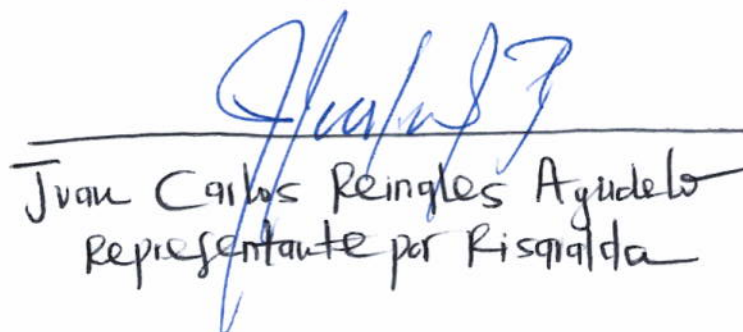 Juan Carlos Reingles Agudelo
Representante por Risaralda